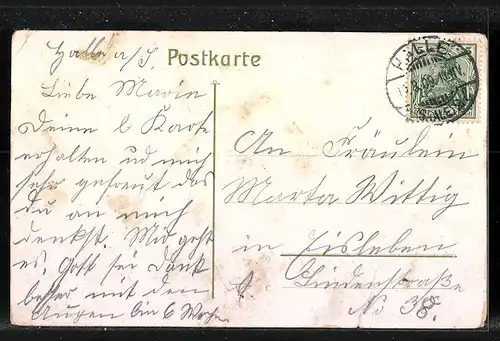 Halle a/S.
Postkarte
Liebe Marie
Deine l Karte
erhalten ud mich
sehr gefreut das
du an mich
denkst. Mir geht
es, Gott sei Dank
besser mit den
Augen bin 6 Woch.
An Fräulein
Marta Wittig
in Eisleben
Lindenstraße
No 38.
HALLE
(SAALE)